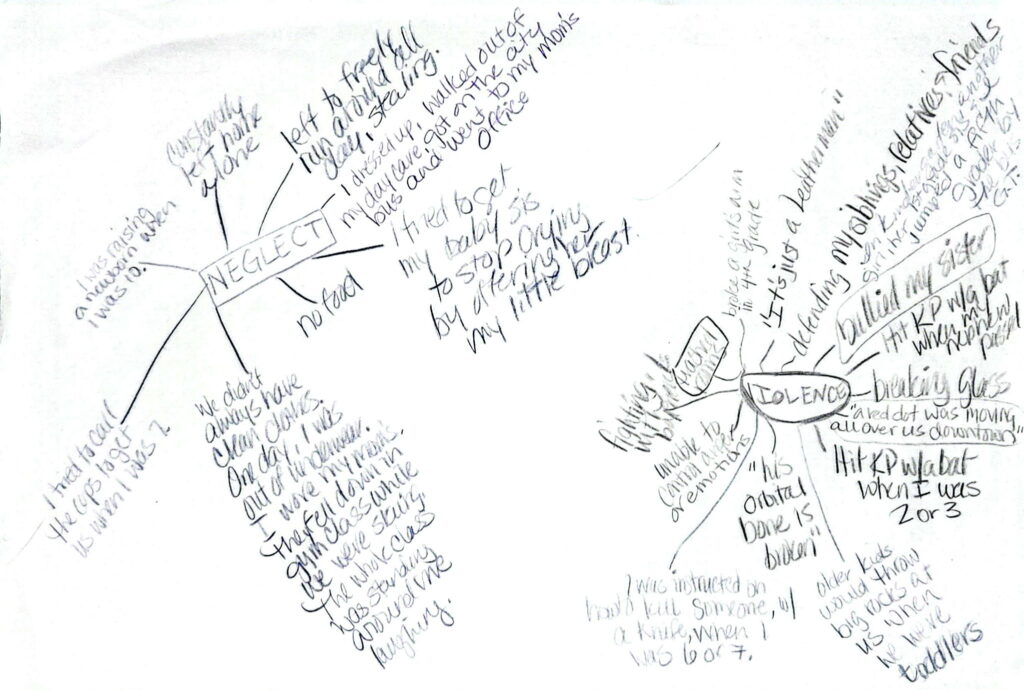 NEGLECT
constantly
left home
alone
left to freely
run around all
day, stealing.
I dressed up, walked out of
my daycare, got on the city
bus and went to my mom's
office
I was raising
a newborn when
I was 10.
I tried to get
my baby sis
to stop crying
by offering her
my little breast.
no food
I tried to call
the cops to get
us when I was 2
We didn't
always have
clean clothes.
One day, I was
out of underwear.
I wore my mom's.
They fell down in
gym class while
we were skating.
The whole class
was standing
around me
laughing.
VIOLENCE
broke a girls arm
in 4th grade
"It's just a leatherman"
defending my siblings, relatives, friends
another
jumped a fifth
grader
bus
bullied my sister
Hit KP w/a bat
when my
nephew
passed
breaking glass
"a red dot was moving
all over us downtown"
Hit KP w/a bat
when I was
2 or 3
older kids
would throw
big rocks at
us when
we were
toddlers
"his
orbital
bone is
broken"
I was instructed on
how kill someone, w/
a knife, when I
was 6 or 7.
unable to
control
emotions
fighting